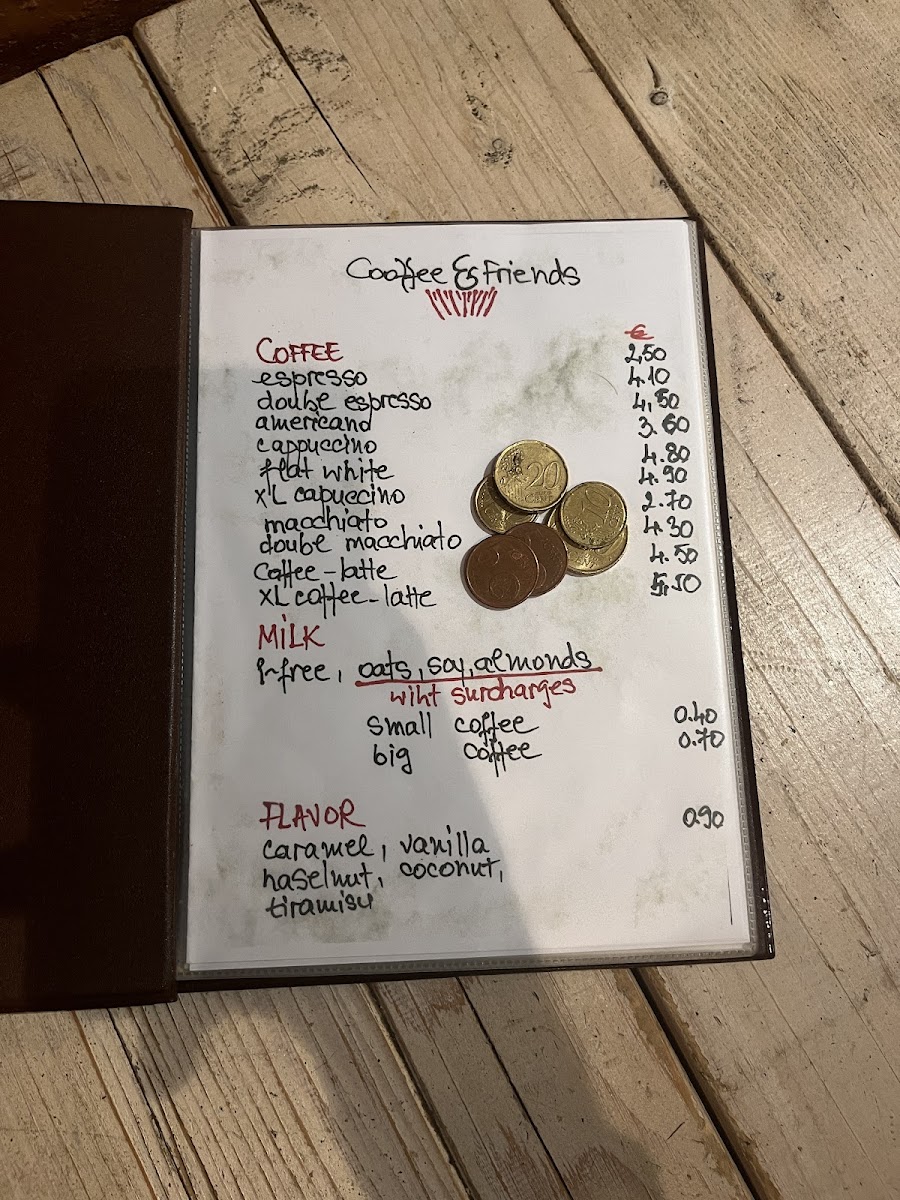 Cooffee & Friends
€
COFFEE
espresso 2,50
doube espresso 4.10
americano 4,50
cappuccino 3.60
flat white 4.80
XL capuccino 4.90
macchiato 2.70
doube macchiato 4.30
coffee-latte 4.50
XL coffee-latte 5,50
MiLK
l-free, oats, soy, almonds
wiht surcharges
small coffee 0.40
big coffee 0.70
FLAVOR 0.90
caramel, vanilla
haselnut, coconut,
tiramisu
20
10